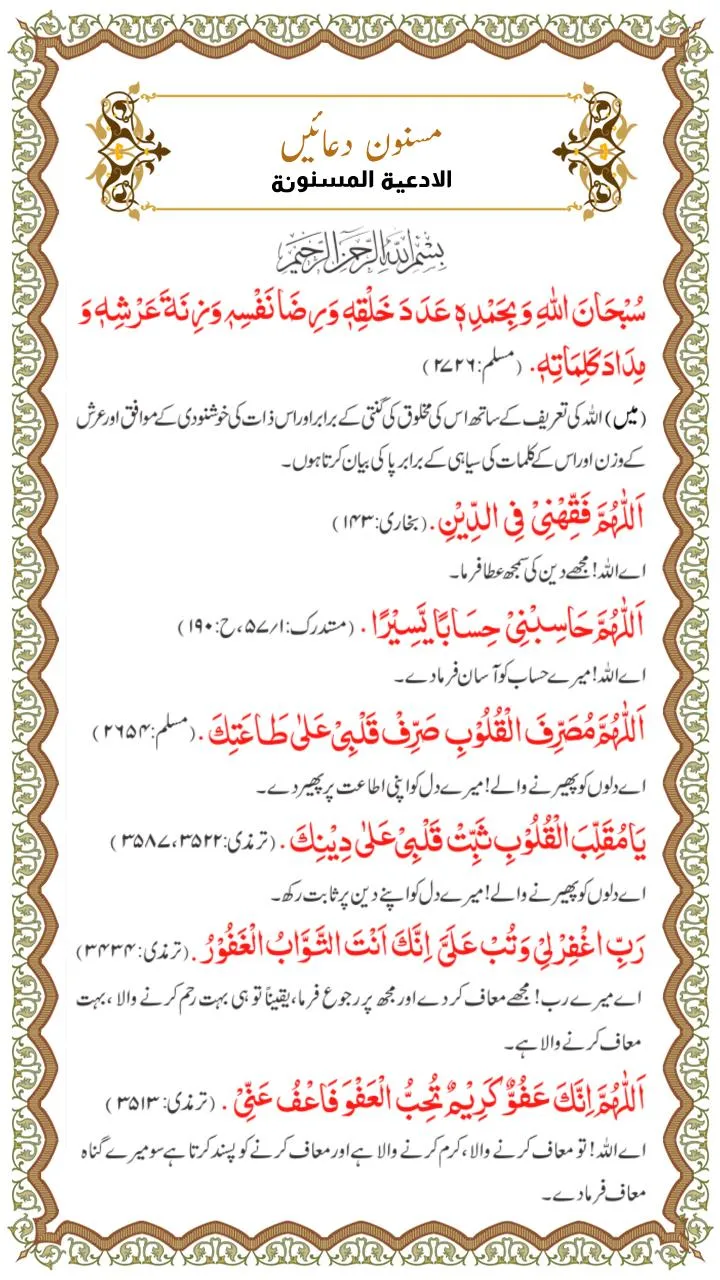 مسنون دعائیں
الادعية المسنونة
بِسْمِ اللهِ الرَّحْمٰنِ الرَّحِيْمِ
سُبْحَانَ اللهِ وَبِحَمْدِهٖ عَدَدَ خَلْقِهٖ وَرِضَا نَفْسِهٖ وَزِنَةَ عَرْشِهٖ وَ
مِدَادَ كَلِمَاتِهٖ. (مسلم: ۲۷۲۶)
(میں) اللہ کی تعریف کے ساتھ اس کی مخلوق کی گنتی کے برابر اور اس ذات کی خوشنودی کے موافق اور عرش
کے وزن اور اس کے کلمات کی سیاہی کے برابر پا کی بیان کرتا ہوں۔
اَللّٰهُمَّ فَقِّهْنِيْ فِي الدِّيْنِ. (بخاری: ۱۴۳)
اے اللہ! مجھے دین کی سمجھ عطا فرما۔
اَللّٰهُمَّ حَاسِبْنِيْ حِسَابًا يَّسِيْرًا. (مستدرک: ۱؍۵۷، ح: ۱۹۰)
اے اللہ! میرے حساب کو آسان فرما دے۔
اَللّٰهُمَّ مُصَرِّفَ الْقُلُوْبِ صَرِّفْ قَلْبِيْ عَلٰى طَاعَتِكَ. (مسلم: ۲۶۵۴)
اے دلوں کو پھیرنے والے! میرے دل کو اپنی اطاعت پر پھیر دے۔
يَا مُقَلِّبَ الْقُلُوْبِ ثَبِّتْ قَلْبِيْ عَلٰى دِيْنِكَ. (ترمذی: ۳۵۲۲، ۳۵۸۷)
اے دلوں کو پھیرنے والے! میرے دل کو اپنے دین پر ثابت رکھ۔
رَبِّ اغْفِرْ لِيْ وَتُبْ عَلَيَّ اِنَّكَ اَنْتَ التَّوَّابُ الْغَفُوْرُ. (ترمذی: ۳۴۳۴)
اے میرے رب! مجھے معاف کر دے اور مجھ پر رجوع فرما، یقیناً تو ہی بہت رحم کرنے والا، بہت
معاف کرنے والا ہے۔
اَللّٰهُمَّ اِنَّكَ عَفُوٌّ كَرِيْمٌ تُحِبُّ الْعَفْوَ فَاعْفُ عَنِّيْ. (ترمذی: ۳۵۱۳)
اے اللہ! تو معاف کرنے والا، کرم کرنے والا ہے اور معاف کرنے کو پسند کرتا ہے سو میرے گناہ
معاف فرما دے۔